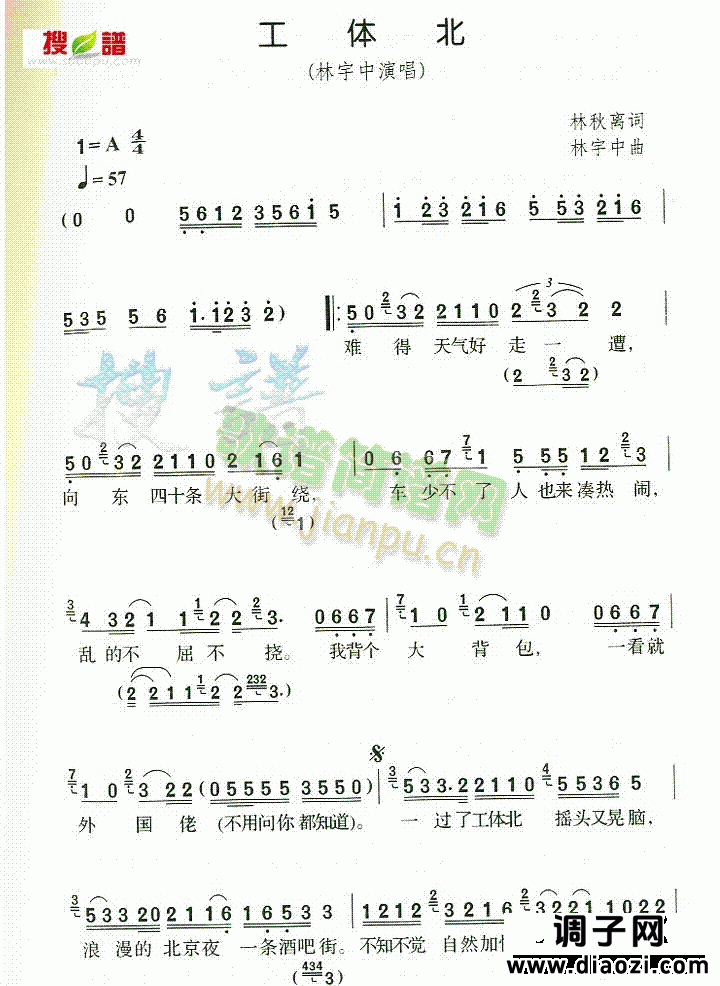 搜谱
www.sooopu.com
工 体 北
(林宇中演唱)
林秋离词
1=A 4/4
林宇中曲
♩=57
(0 0 5612 3561 5 | 1 23 216 5 53 216 |
535 5 6 1.123 2) ‖: 50 2 32 2110 2 2 3 2 2
难 得 天气好 走一 遭,
(2 2 3 2)
50 2 32 2110 2 1 6 1 | 0 6 67 7 1 5 55 12 2 3 |
向 东 四十条 大街 绕, 车 少不了 人也来凑热 闹,
(12 1)
3 4 321 1 1 2 2 2 3. 0667 | 7 1 0 2 2110 0667 |
乱的不 屈不 挠。 我背个 大 背包, 一看就
(2 211 1 2 2 232 3.)
7 1 0 2 3 22 (05555 3550) | 3 533.2 2110 4 55365 |
外 国佬 (不用问你都知道)。 一过了工体北 摇头又晃脑,
3 53320 2116 1653 3 | 1212 3216 3221 1022
浪漫的 北京夜 一条酒吧街。 不知不觉 自然加
(434 3)
搜谱
歌谱简谱网
www.jianpu.cn
调子网
www.diaozi.com